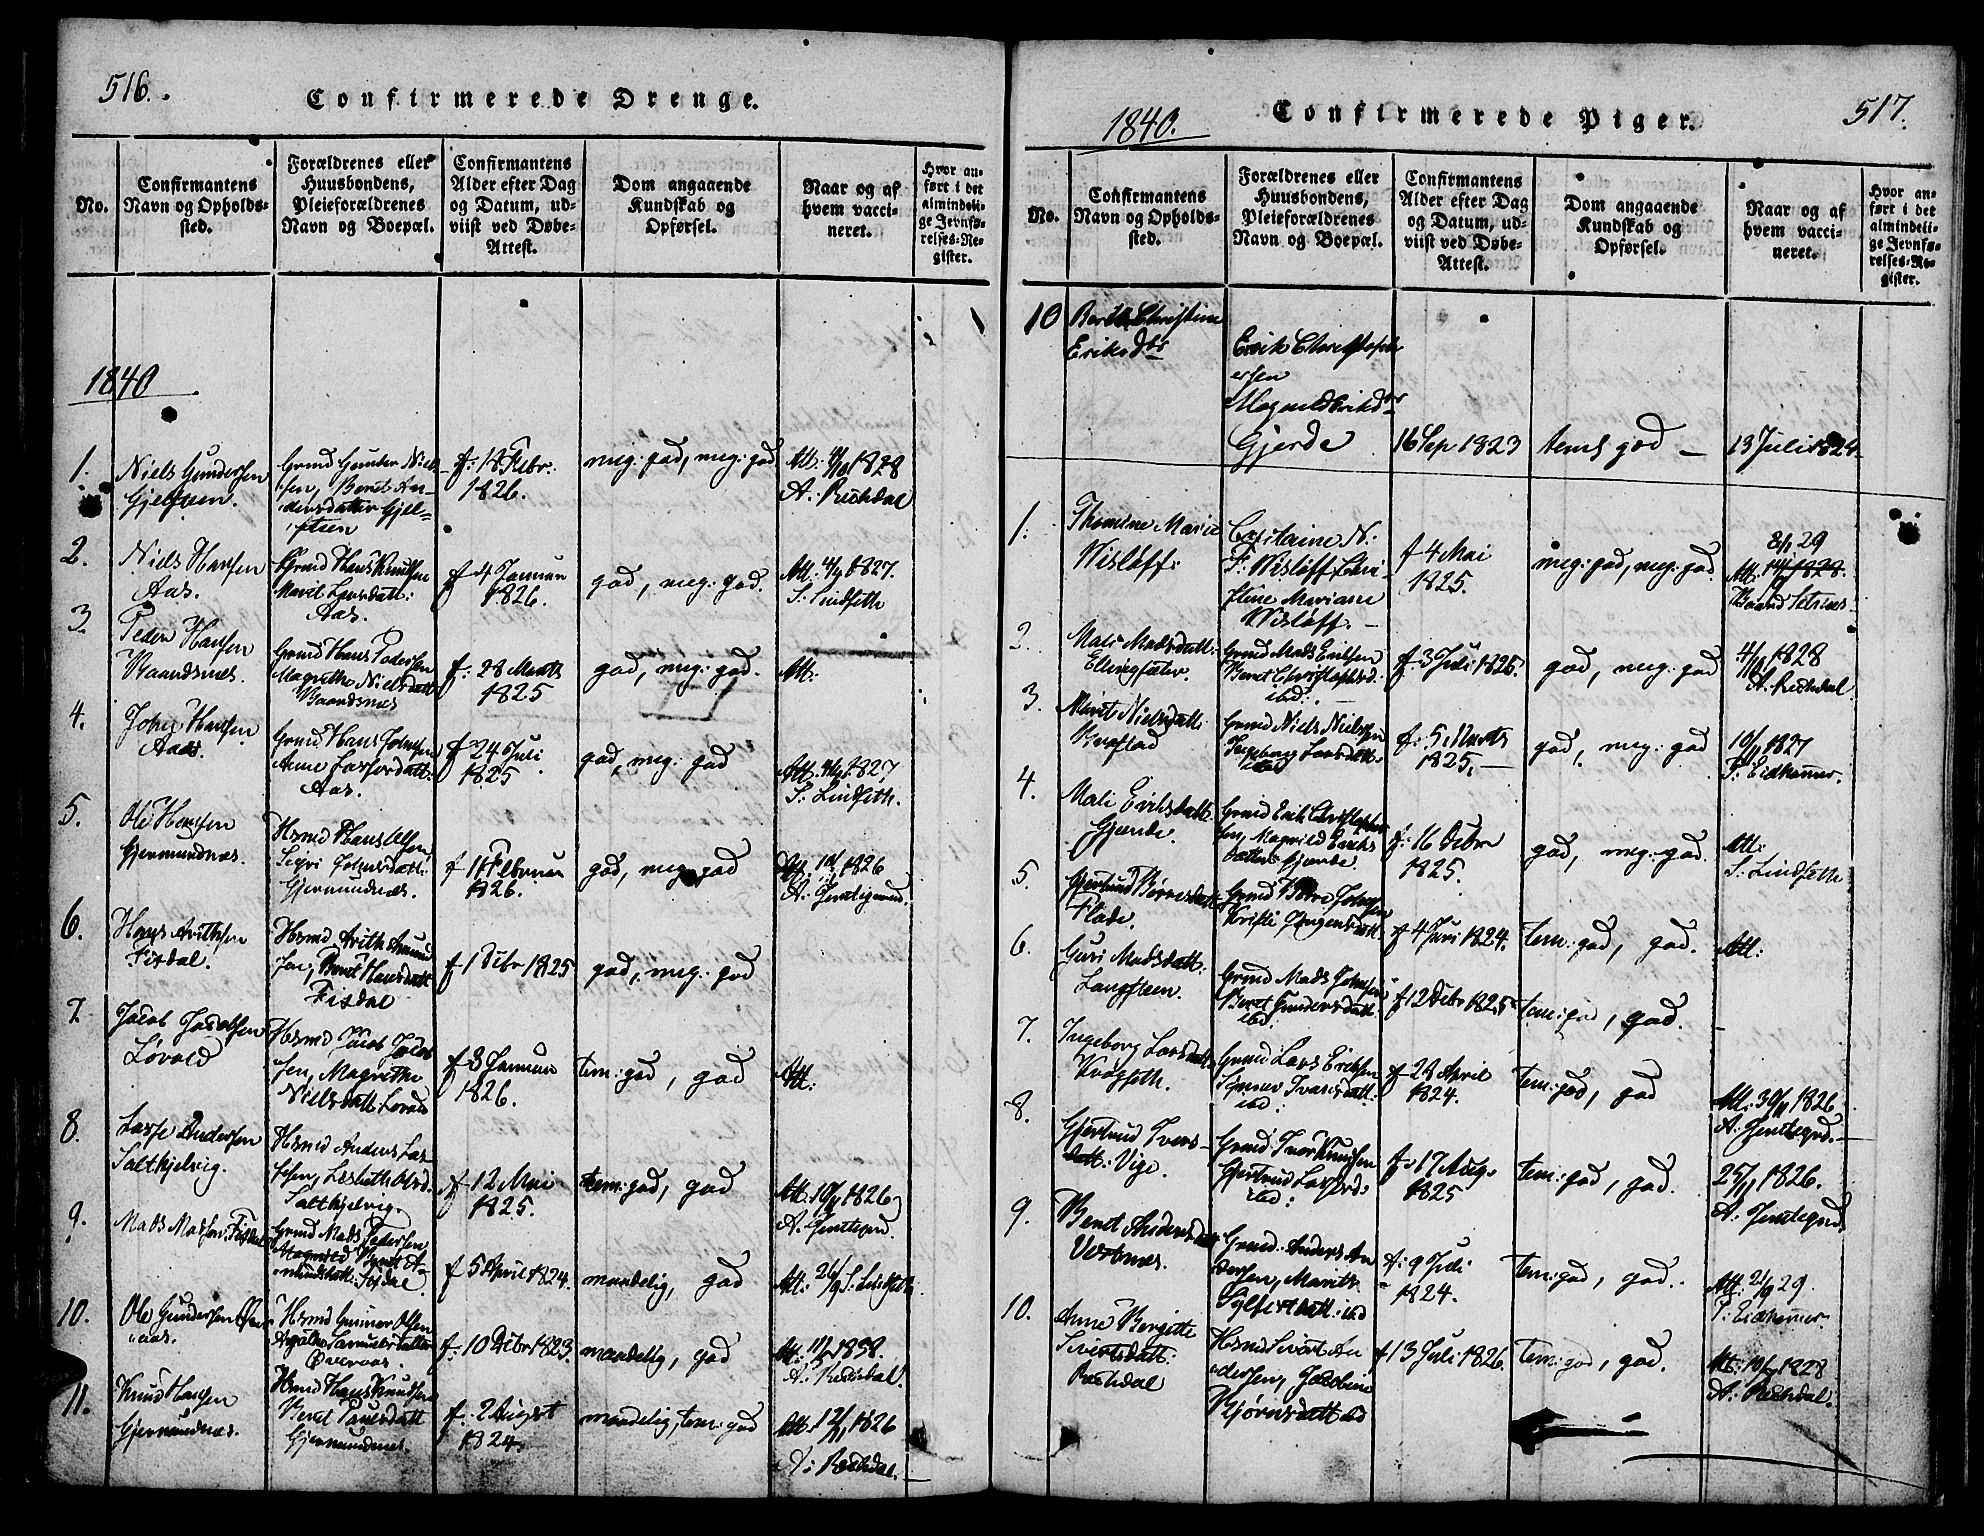 516.
Confirmerede Drenge.
No.
Confirmantens
Navn og Opholds-
sted.
Forældrenes eller
Huusbondens,
Pleieforældrenes
Navn og Boepæl.
Confirmantens
Alder efter Dag
og Datum, ud-
viist ved Døbe-
Attest.
Dom angaaende
Kundskab og
Opførsel.
Naar og af
hvem vacci-
neret.
Hvor an-
ført i det
almindeli-
ge Jevnfø-
relses-Re-
gister.
1840
1.
Niels Gundersen
Gjelsteen.
Grmd Gunder Niel-
sen, Beret An-
dersdatter Gjel-
steen
f: 18 Febr:
1826.
meg: god, meg: god
Att: 4/10 1828
A. Rechdal
2.
Niels Hansen
Aas.
Grmd Hans Knudsen
Marit Larsdatt:
Aas.
f 4 Januar
1826.
god, meg: god.
Att: 1827.
S. Lindseth
3.
Peder Hansen
Vaandsnæs.
Grmd Hans Pedersen
Magrethe Nielsdatt
Vaandsnæs
f: 28 Marts
1825
god, meg: god.
Att:
4.
John Hansen
Aas.
Grmd Hans Johnsen
Anne Lassesdatt:
Aas.
f 24 Juli
1825
god, meg: god
Att: 1827
S. Lindseth.
5.
Ole Hansen
Gjermundnæs.
Hsmd Hans Olsen,
Sigri Johnsdatt:
Gjermundnæs.
f 11 Februar
1826.
god, meg: god
Att: 1826
A. Jenstigerud.
6.
Hans Arithsen
Fixdal.
Hsmd Arith Amund-
sen, Beret Hansdatt
Fixdal
f 1 Decbr 1825
god, meg: god
7.
Jacob Jacobsen
Lovold
Hsmd Jacob Jacob-
sen, Magrethe
Nielsdatt: Lovold
f 8 Januar
1826.
tem: god, god
Att:
8.
Lasse Andersen
Saltkjelvig.
Hsmd Anders Las-
sesen, Lisbeth
Saltkjelvig.
f 12 Mai
1825.
tem: god, god
Att: 10/11 1826
A. Jenstigrud.
9.
Mads Madsen Fixdal
Grmd Mads Pedersen
Beret A-
mundsdatt: Fixdal
f 5 April 1824.
maadelig, god
Att: 26/9 S. Lindseth
10.
Ole Gundersen Øver-
aas.
Hsmd Gunner Olsen
Samuelsdatter
Øveraas
f: 10 Decbr 1823.
maadelig, god
Att: 1838.
A. Rechdal.
11.
Knud Hansen
Gjermundnæs.
Hsmd Hans Knudsen
Beret Paulsdatt
Gjermundnæs.
f. 2 August
1824.
maadelig, tem: god
Att: 12/11 1826
A. Rechdal.
1840.
Confirmerede Piger.
517.
No.
Confirmantens
Navn og Opholds-
sted.
Forældrenes eller
Huusbondens,
Pleieforældrenes
Navn og Boepæl.
Confirmantens
Alder efter Dag
og Datum, ud-
viist ved Døbe-
Attest.
Dom angaaende
Kundskab og
Opførsel.
Naar og af
hvem vacci-
neret.
Hvor an-
ført i det
almindeli-
ge Jevnfø-
relses-Re-
gister.
10
Berith Christine
Eriksdtr
Erik Christoph-
ersen
Magnild Eriksdtr
Gjerde
16 Sep 1823
teml god –
13 Juli 1824
1.
Thomine Marie
Wisløff:
Capitaine N.
F. Wisløff, Chri-
stine Mariane
Wisløff.
f 4 Mai
1825.
meg: god, meg: god.
8/1 29
Att: 1828.
Baard Setnæs
2.
Mali Madsdatt:
Ellingsæter.
Grmd Mads Eriksen
Beret Christophsd.
ibd:
f. 3 Juli 1825.
god, meg: god
4/10 1828
A. Rechdal
3.
Marit Nielsdatt:
Grmd Niels Nielsen
Ingeborg Larsdatt:
ibd
f: 5 Marts
1825.
god, meg: god
10/11 1827
P. Eidhammer.
4.
Mali Eriksdatt:
Gjerde.
Grmd Erik Christopher-
sen, Magnild Eriks-
datter Gjerde.
f: 16 Octbr
1825.
god, meg: god.
Att:
S. Lindseth
5.
Gjertrud Børresdatt
Flade.
Grmd Børre Johnsen
Kristi Jørgensdatt
f 4 Juni 1824.
tem: god, god.
Att:
6.
Guri Madsdatt:
Langsteen.
Grmd Mads Johnsen
Beret Gundersdatt:
ibd:
f 12 Decbr 1825
tem: god, god.
7.
Ingeborg Larsdatt
Kragseth.
Grmd Lars Eriksen
Synnev Ivarsdatt:
ibd:
f 28 April
1824.
tem: god, god
Att: 30/11 1826
A. Jenstigrud.
8.
Gjertrud Ivers-
datt: Vige.
Grmd Iver Knudsen
Gjertrud Lassesd:
ibd:
f. 17 Aug.
1825
tem: god, god.
25/11 1826.
A. Jenstigrud.
9.
Beret Andersdatt
Vestnes.
Grmd. Anders An-
dersen, Marith
Sylfestdatt: ibd
f: 9 Juli
1824.
tem: god, god.
Att: 21/9 29.
P. Eidhammer.
10.
Anne Bergitte
Sivertsdatt:
Rechdal
Hsmd Sivert An-
dersen, Jacobine
Bjørnsdatt ibd
f 13 Juli 1826.
tem: god, god.
Att: 1828
A. Rechdal.